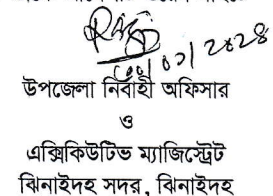 উপজেলা নির্বাহী অফিসার
ও
এক্সিকিউটিভ ম্যাজিস্ট্রেট
ঝিনাইদহ সদর, ঝিনাইদহ